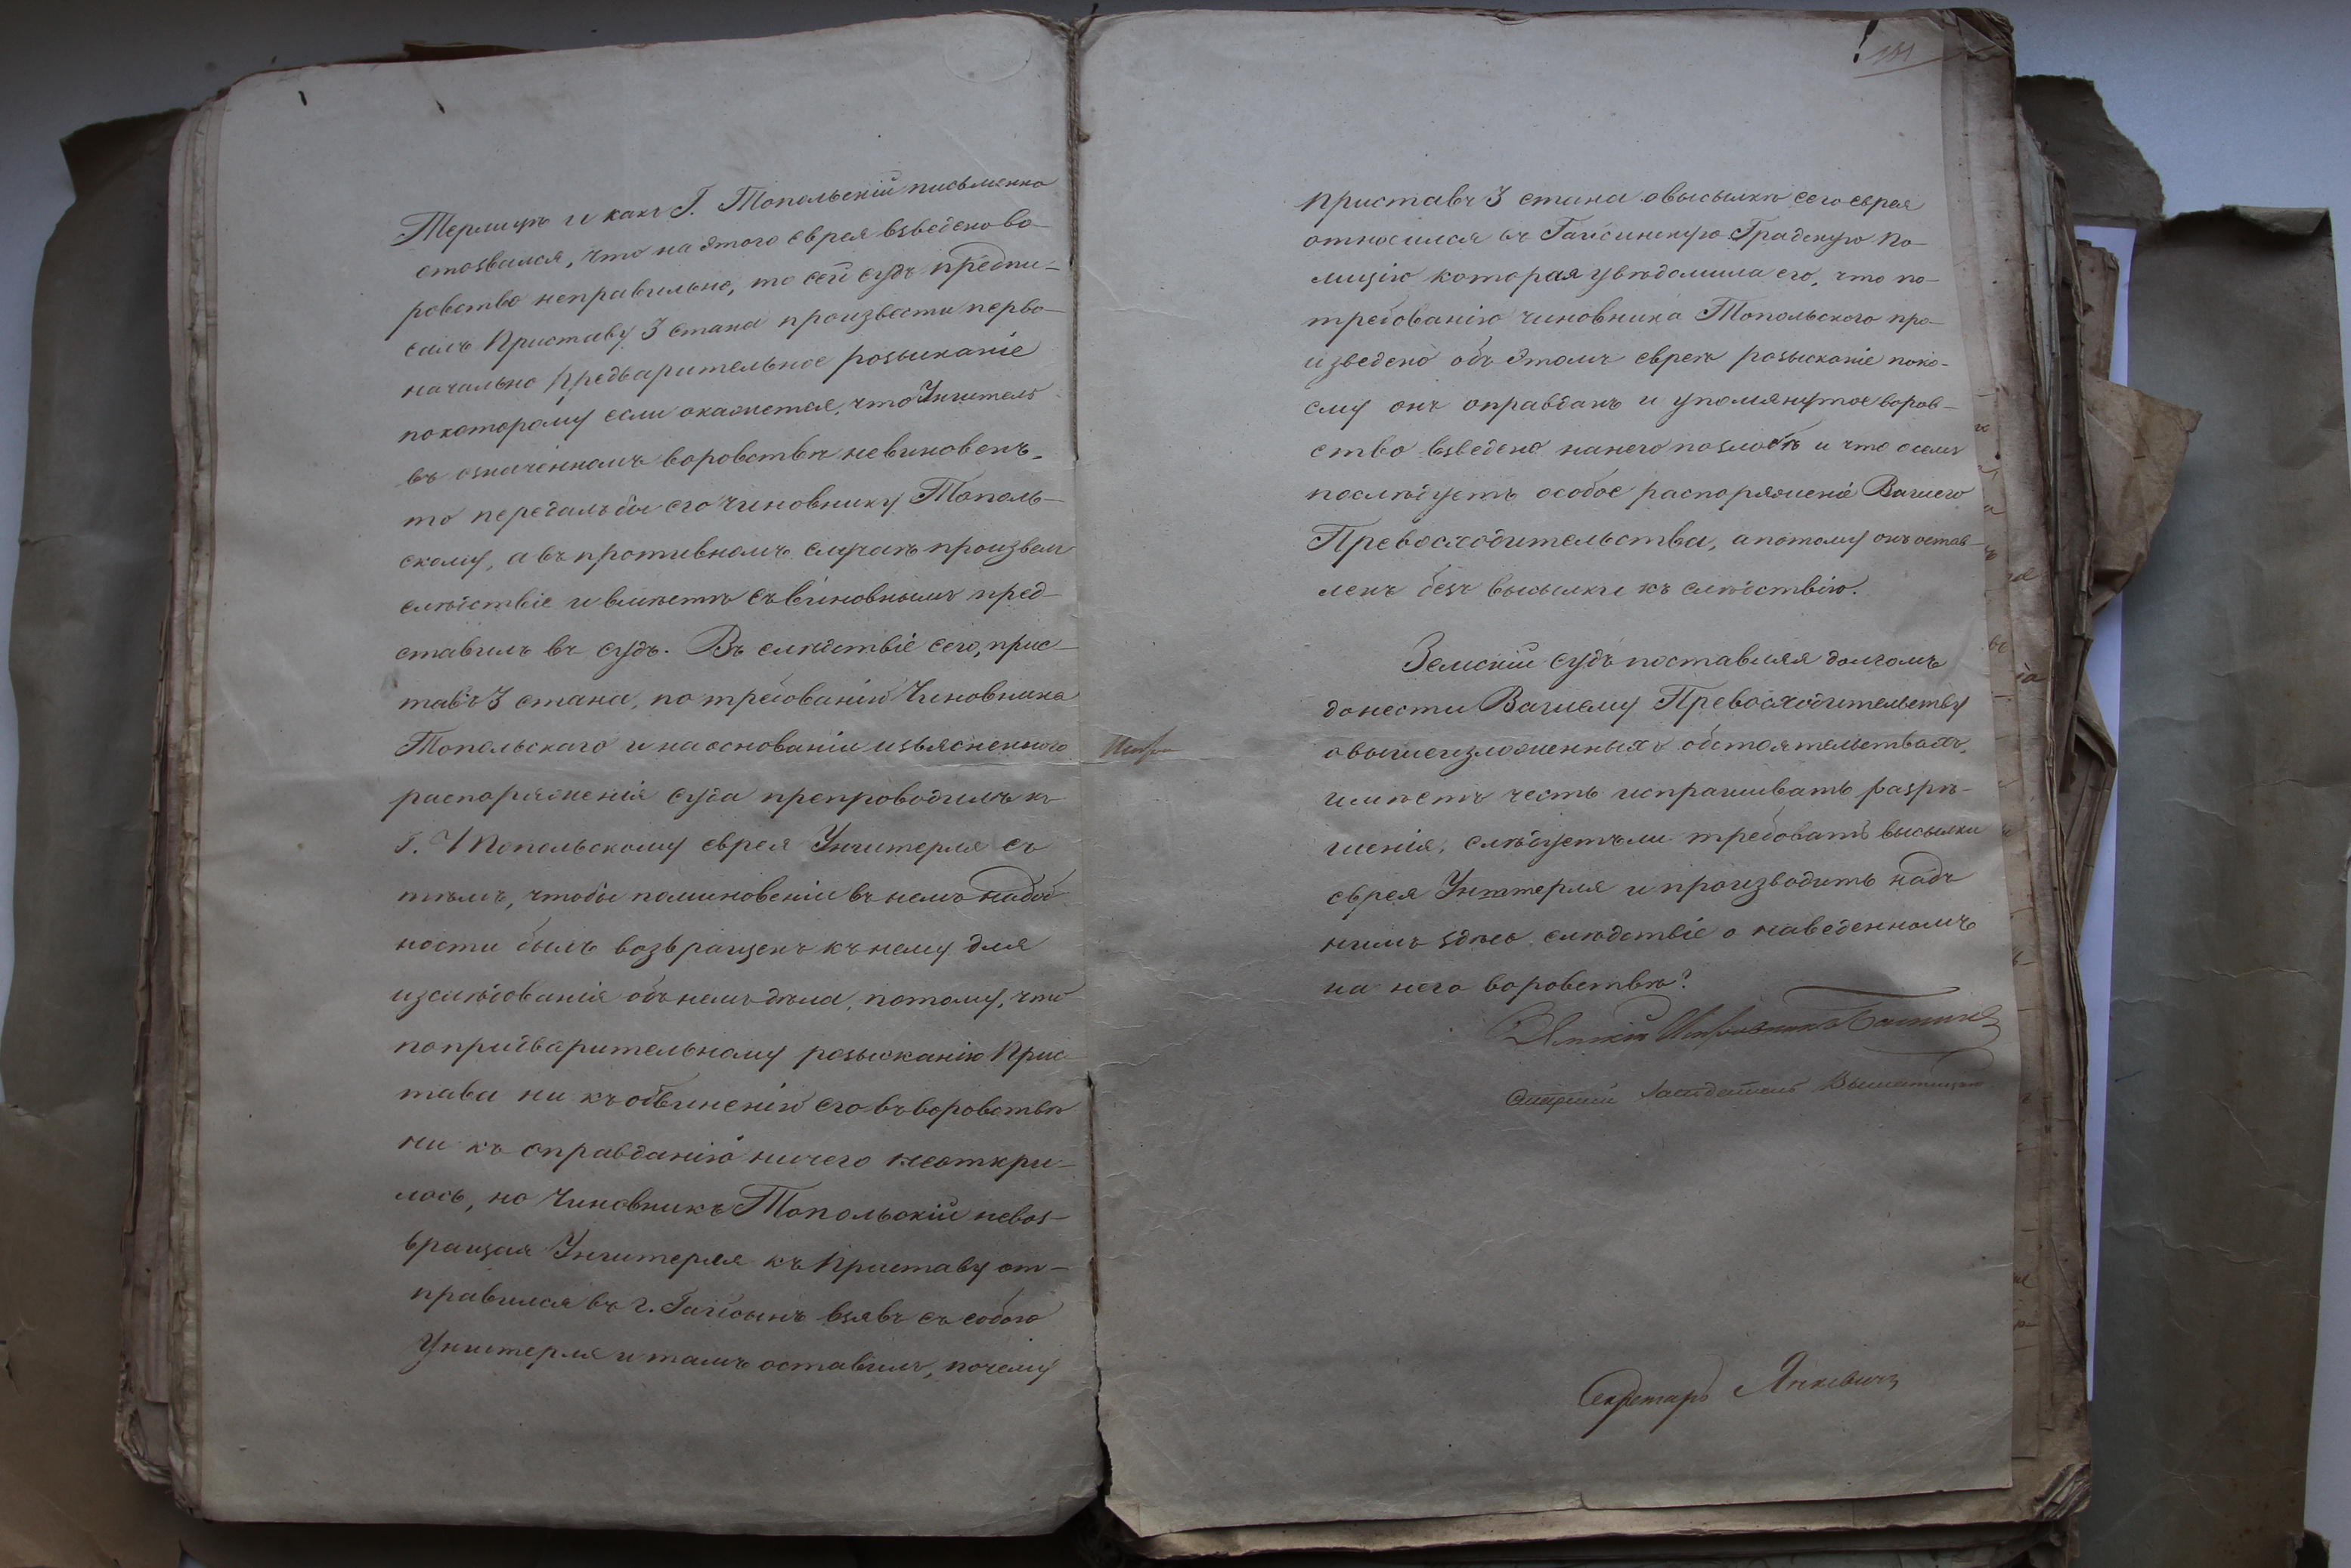 Термиръ и какъ Г. Топольскій письменно
отозвался, что на этого еврея взведено во-
ровство неправильно, то сей судъ предпи-
салъ Приставу 3 стана произвести перво-
начально предварительное розысканіе
покоторому если окажется, что
въ означенномъ воровствѣ невиновенъ,
то передалъ бы его Чиновнику Тополь-
скому, а въ противномъ случаѣ произвелъ
слѣдствіе и вмѣстѣ съ виновнымъ пред-
ставилъ въ судъ. Въ слѣдствіе сего, прис-
тавъ 3 стана, по требованію Чиновника
Топольскаго и на основаніи изъясненного
распоряженія суда препроводилъ къ
Г. Топольскому еврея Унгитерля съ
тѣмъ, чтобы поминовеніи въ немъ надоб
ности былъ возвращенъ къ нему для
изслѣдованія объ немъ дѣла, потому, что
по придварительному розысканію Прис
тава ни къ обвиненію его въ воровствѣ
ни къ оправданію ничего неоткри-
лось, но Чиновникъ Топольскій невоз-
вращая Унгитерля къ Приставу от-
правился въ г. Гайсынъ взявъ съ собою
Унгитерля и тамъ оставилъ, почему
приставъ 3 стана овысылкѣ сего еврея
относился въ Гайсинскую Градскую По-
лицію которая увѣдомила его, что по-
требованію чиновника Топольского про-
изведено объ этомъ евреѣ розысканіе поко-
ему онъ оправданъ и упомянутое воров-
ство взведено нанего по злобѣ и что осемъ
послѣдуетъ особое распоряженіе Вашего
Превосходительства, а потому онъ остав-
ленъ безъ высылки къ слѣдствію.
Земскій судъ поставляя долгомъ
донести Вашему Превосходительству
овышеизложенныхъ обстоятельствахъ,
имѣетъ честь испрашивать разрѣ-
шенія, слѣдуетъ ли требовать высылки
еврея Унгитерля и производить надъ
нимъ здѣсь слѣдствіе о наведенномъ
на него воровствѣ?
Земскій Исправникъ
Старшій Засѣдатель
Секретарь Янкевичъ